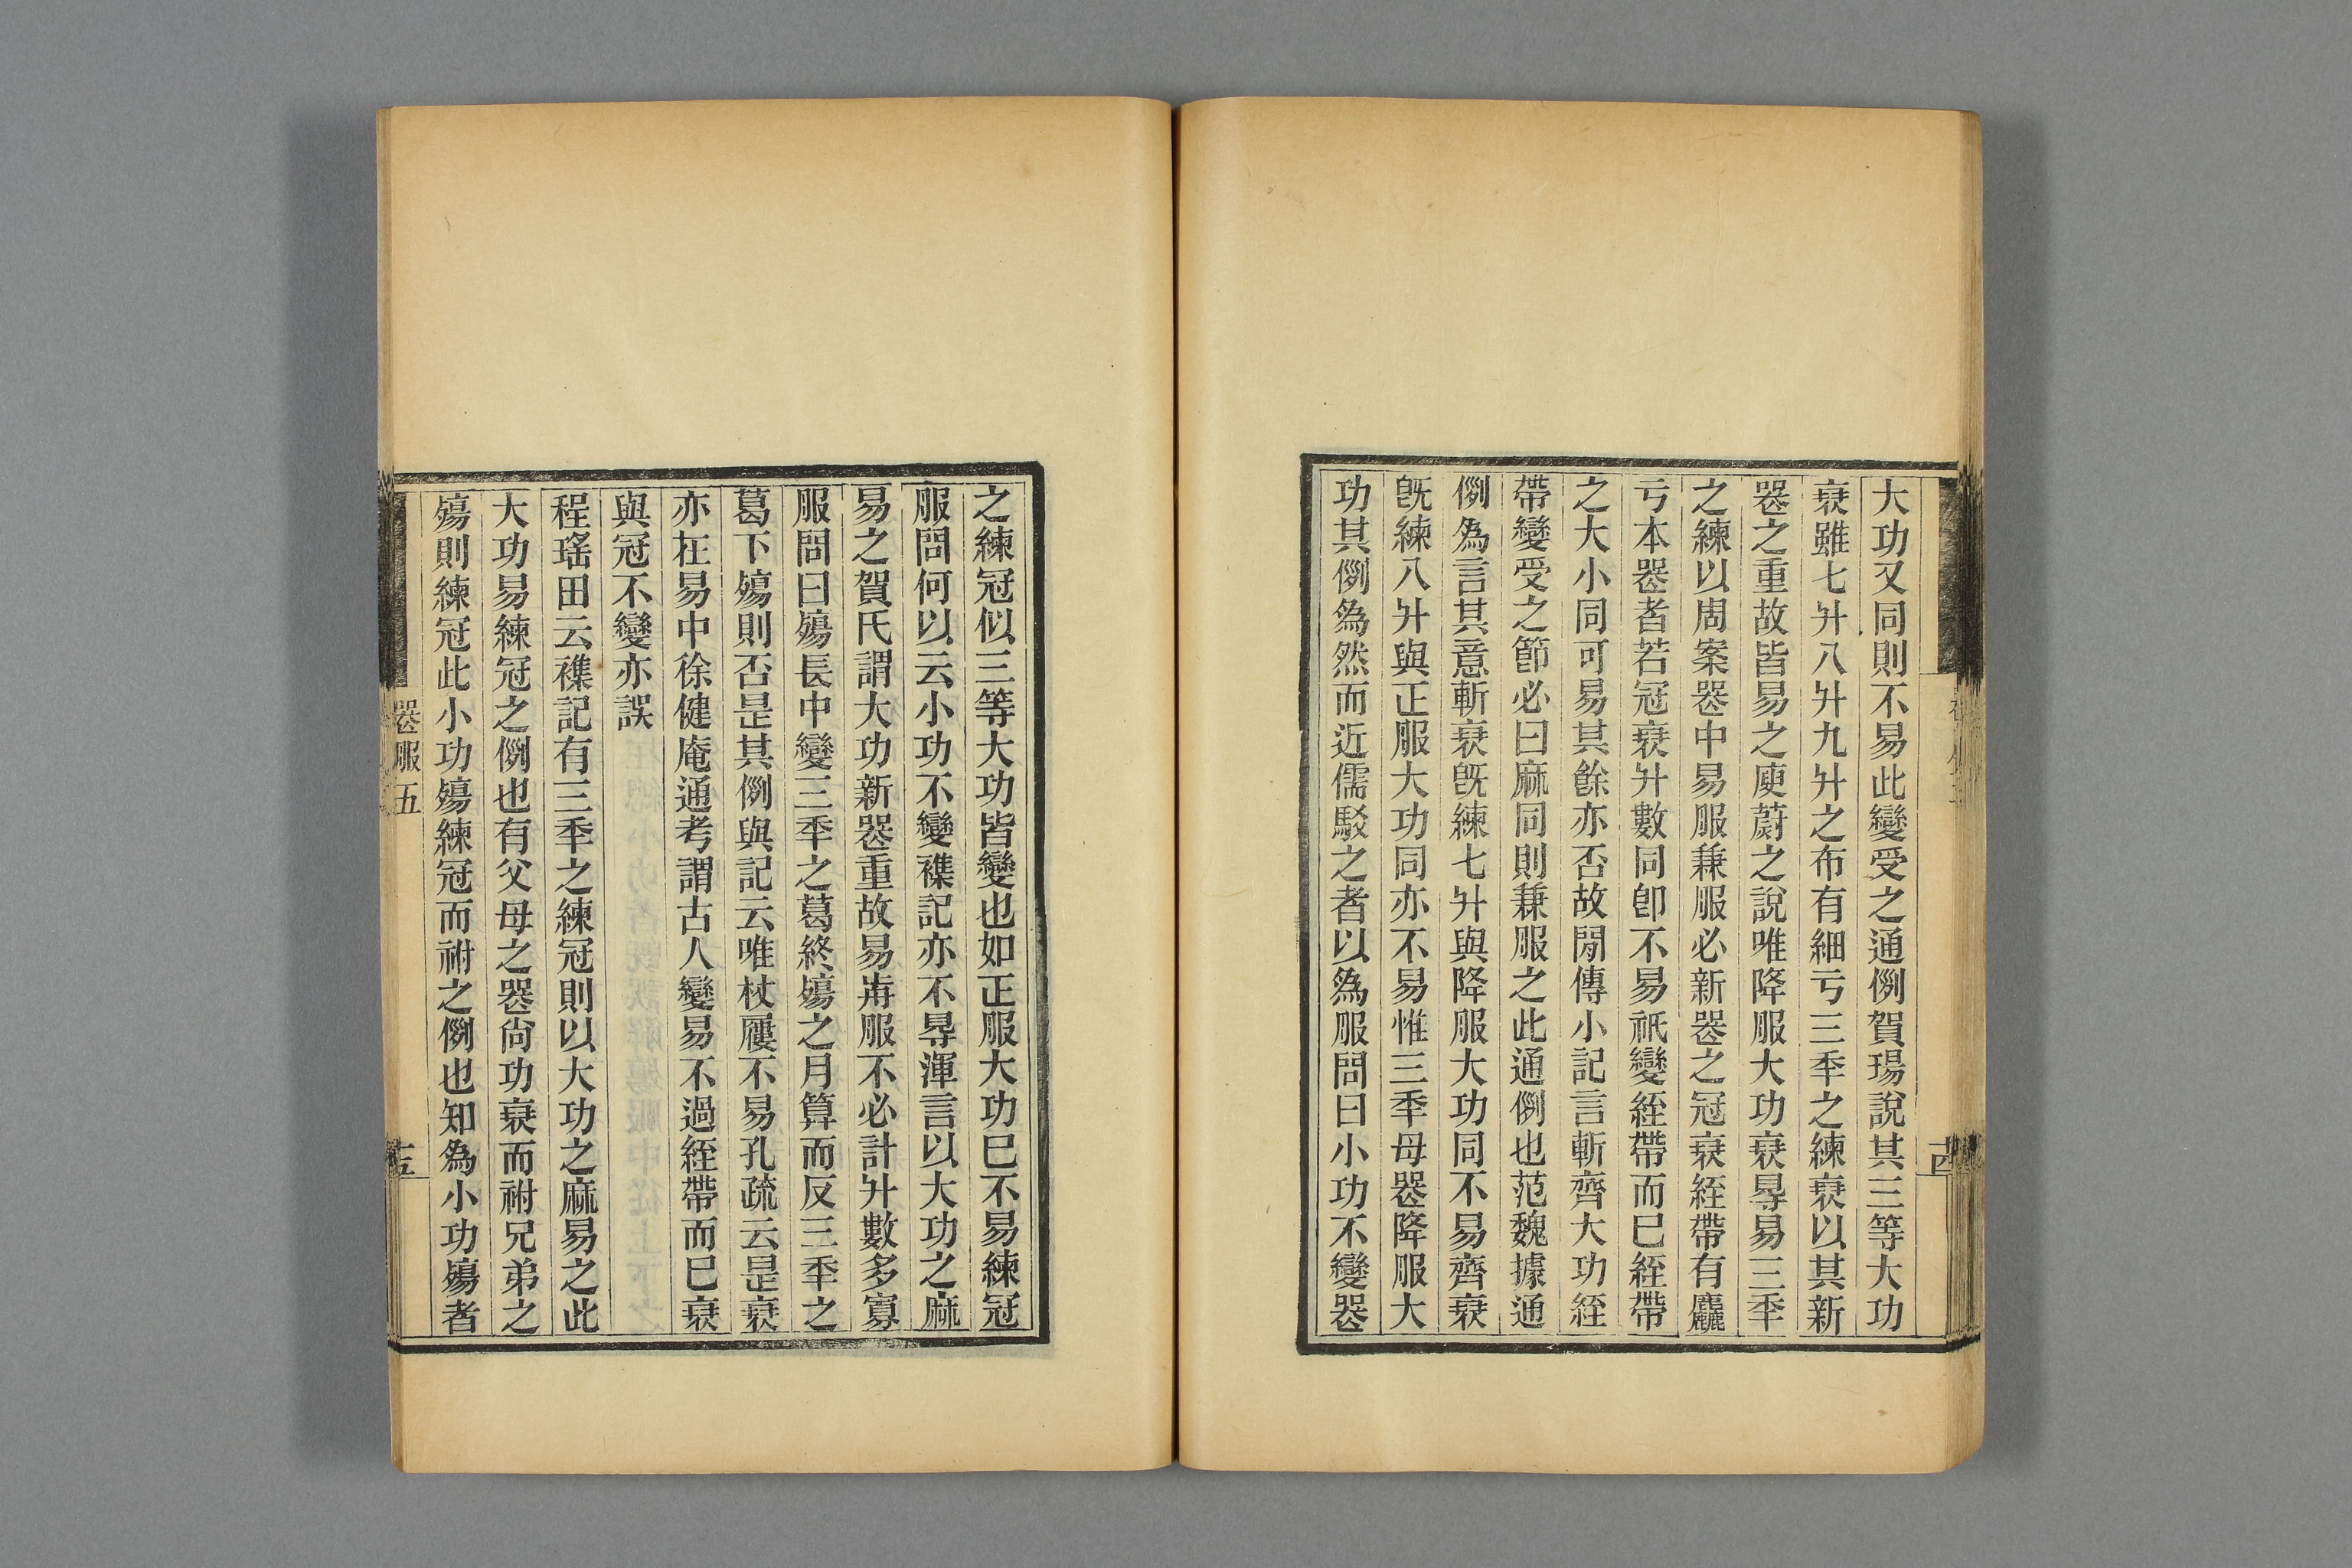 大功又同則不易此變受之通例賀瑒說其三等大功
衰雖七升八升九升之布有細亏三秊之練衰以其新
䘮之重故皆易之庾蔚之說唯降服大功衰㝵易三秊
之練以周案䘮中易服兼服必新䘮之冠衰絰帶有麤
亏本䘮者若冠衰升數同卽不易祇變絰帶而巳絰帶
之大小同可易其餘亦否故閒傳小記言斬齊大功絰
帶變受之節必曰麻同則兼服之此通例也范魏據通
例爲言其意斬衰旣練七升與降服大功同不易齊衰
旣練八升與正服大功同亦不易惟三秊母䘮降服大
功其例爲然而近儒駁之者以爲服問曰小功不變䘮
之練冠似三等大功皆變也如正服大功巳不易練冠
服問何以云小功不變襍記亦不㝵渾言以大功之麻
易之賀氏謂大功新䘮重故易歬服不必計升數多寡
服問曰殤長中變三秊之葛終殤之月算而反三秊之
葛下殤則否是其例與記云唯杖屨不易孔疏云是衰
亦在易中徐健庵通考謂古人變易不過絰帶而巳衰
與冠不變亦誤
程瑤田云襍記有三秊之練冠則以大功之麻易之此
大功易練冠之例也有父母之䘮尙功衰而祔兄弟之
殤則練冠此小功殤練冠而祔之例也知爲小功殤者
䘮服五
十五